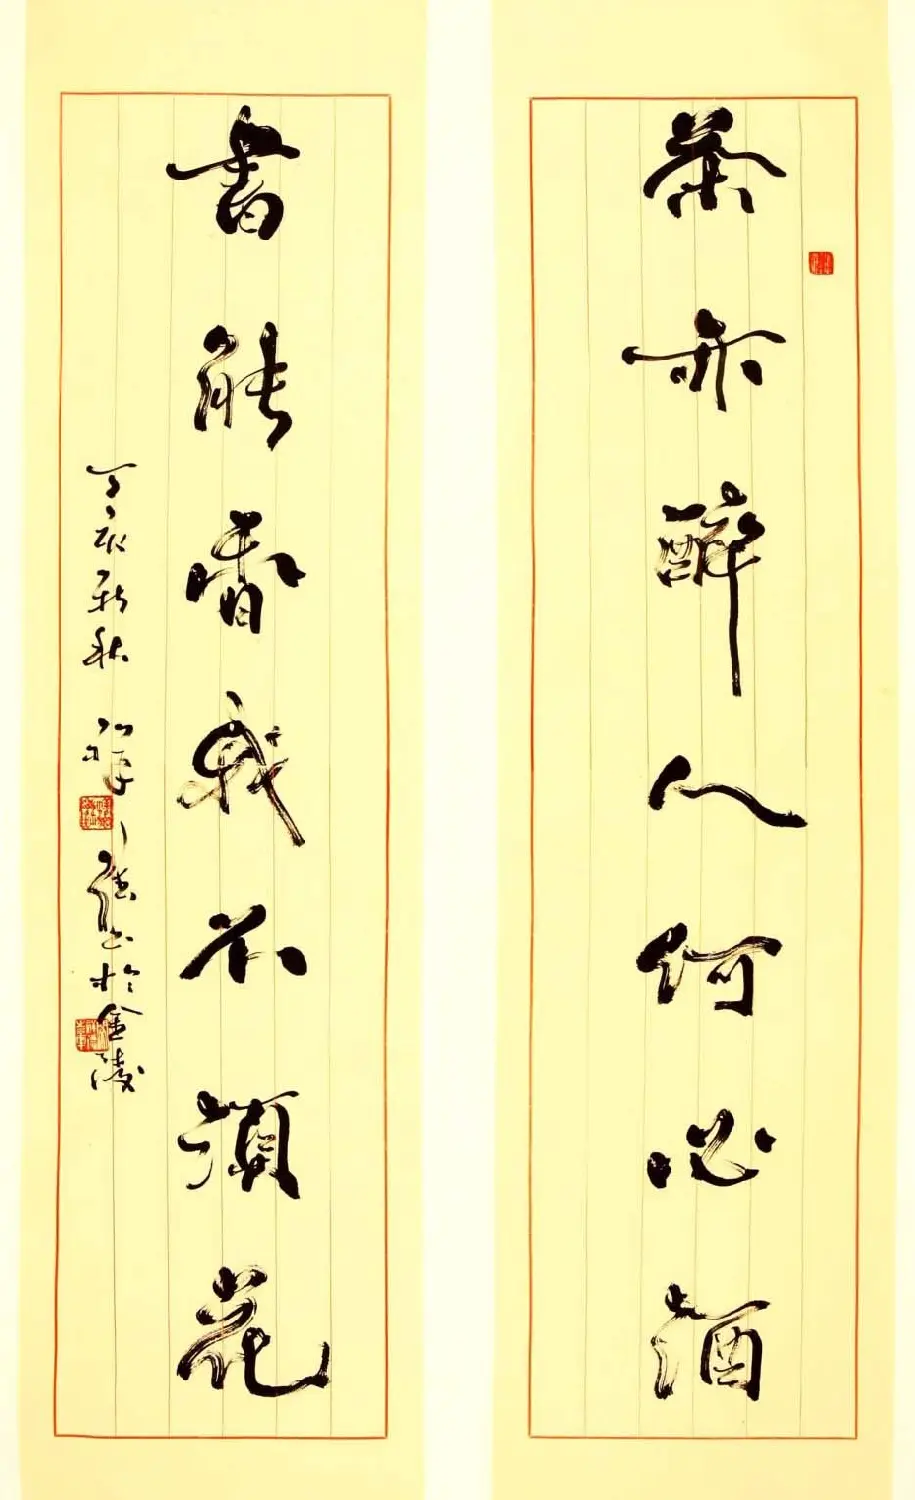 茶亦醉人何必酒
書能香我不須花
丁亥新秋 書於金陵